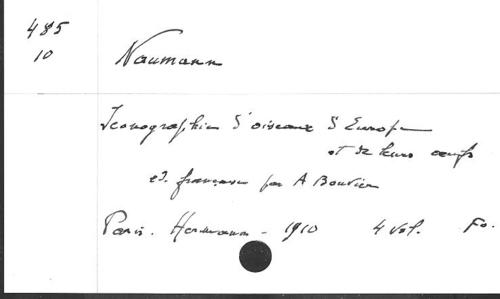 485
10
Naumann
Iconographie d'oiseaux d'Europe
et de leurs œufs
éd. française par A Bouvier
Paris. Hermann - 1910 4 vol. Fo.